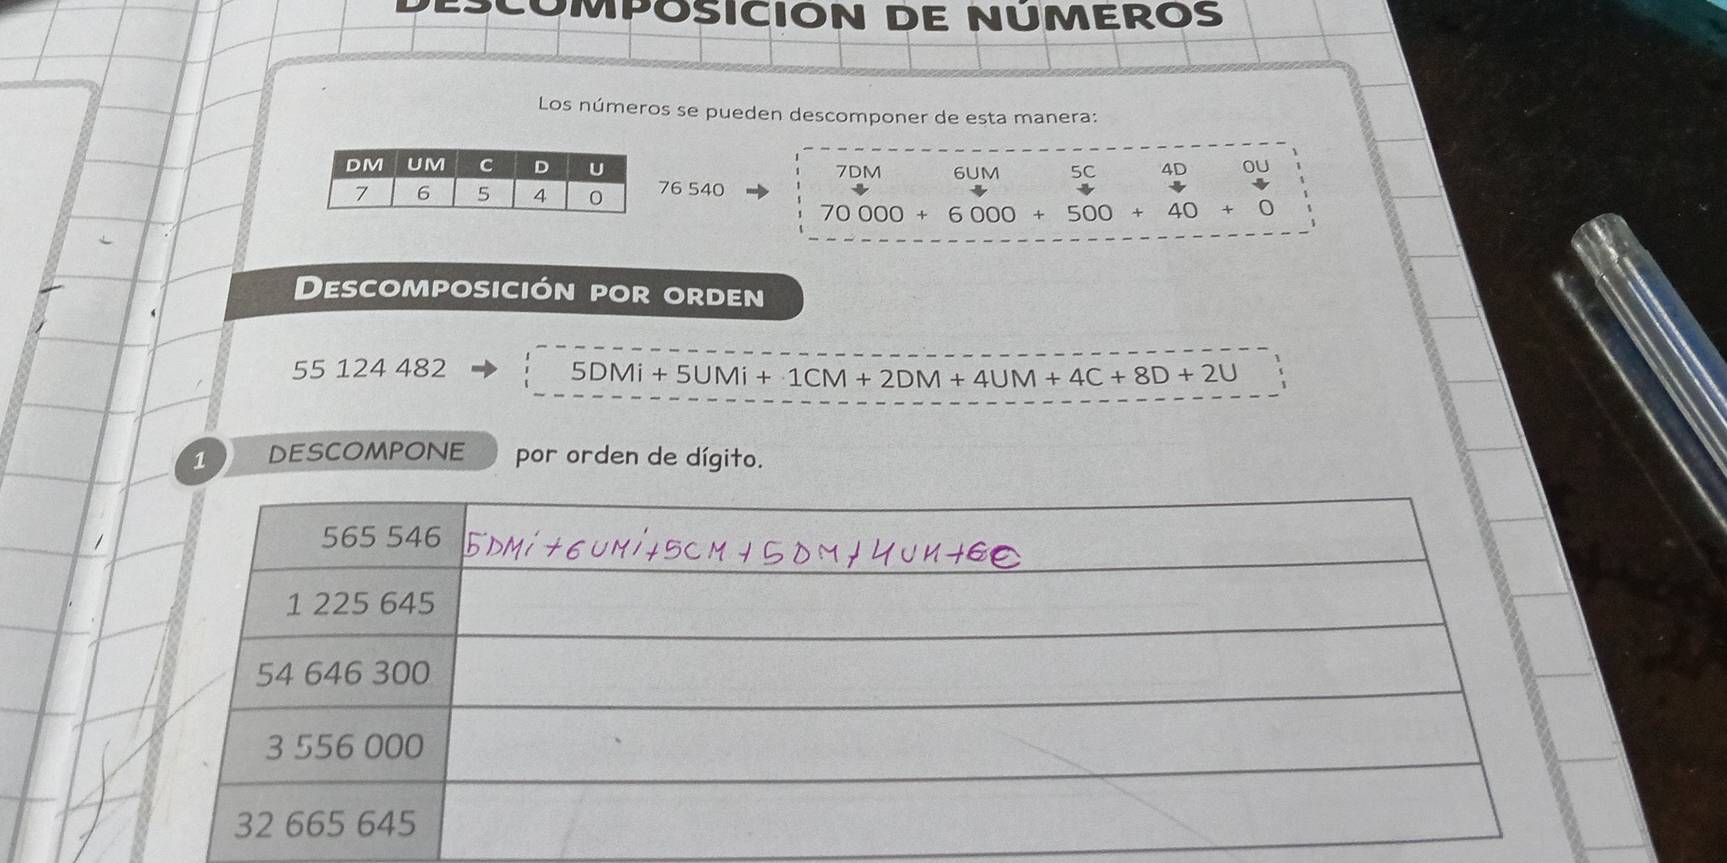 DESCOMPOSICIÓN DE NÚMEROS
Los números se pueden descomponer de esta manera:
DM UM C D U
7 6 5 4 0
76 540
7DM 6UM 5C 4D 0U
70 000 + 6 000 + 500 + 40 + 0
DESCOMPOSICIÓN POR ORDEN
55 124 482 → 5DMi + 5UMi + 1CM + 2DM + 4UM + 4C + 8D + 2U
1 DESCOMPONE por orden de dígito.
565 546 5DMi+6UMi+5CM+5DM+4UM+6C
1 225 645
54 646 300
3 556 000
32 665 645